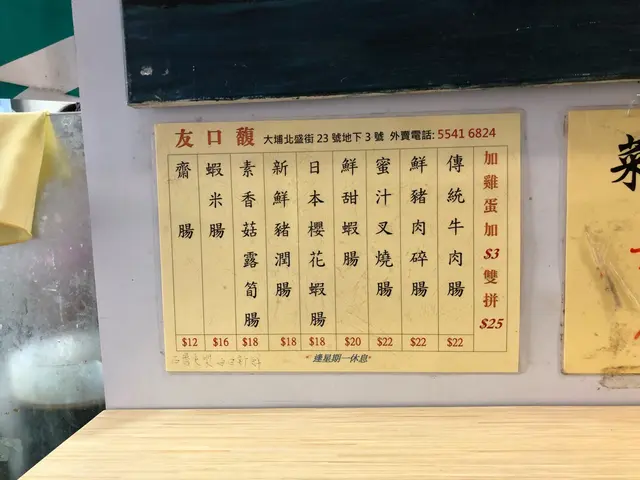 友口馥 大埔北盛街23號地下3號 外賣電話: 5541 6824
加雞蛋加$3雙拼$25
傳統牛肉腸 $22
鮮豬肉碎腸 $22
蜜汁叉燒腸 $22
鮮甜蝦腸 $20
日本櫻花蝦腸 $18
新鮮豬潤腸 $18
素香菇露筍腸 $18
蝦米腸 $16
齋腸 $12
*逢星期一休息*
菜